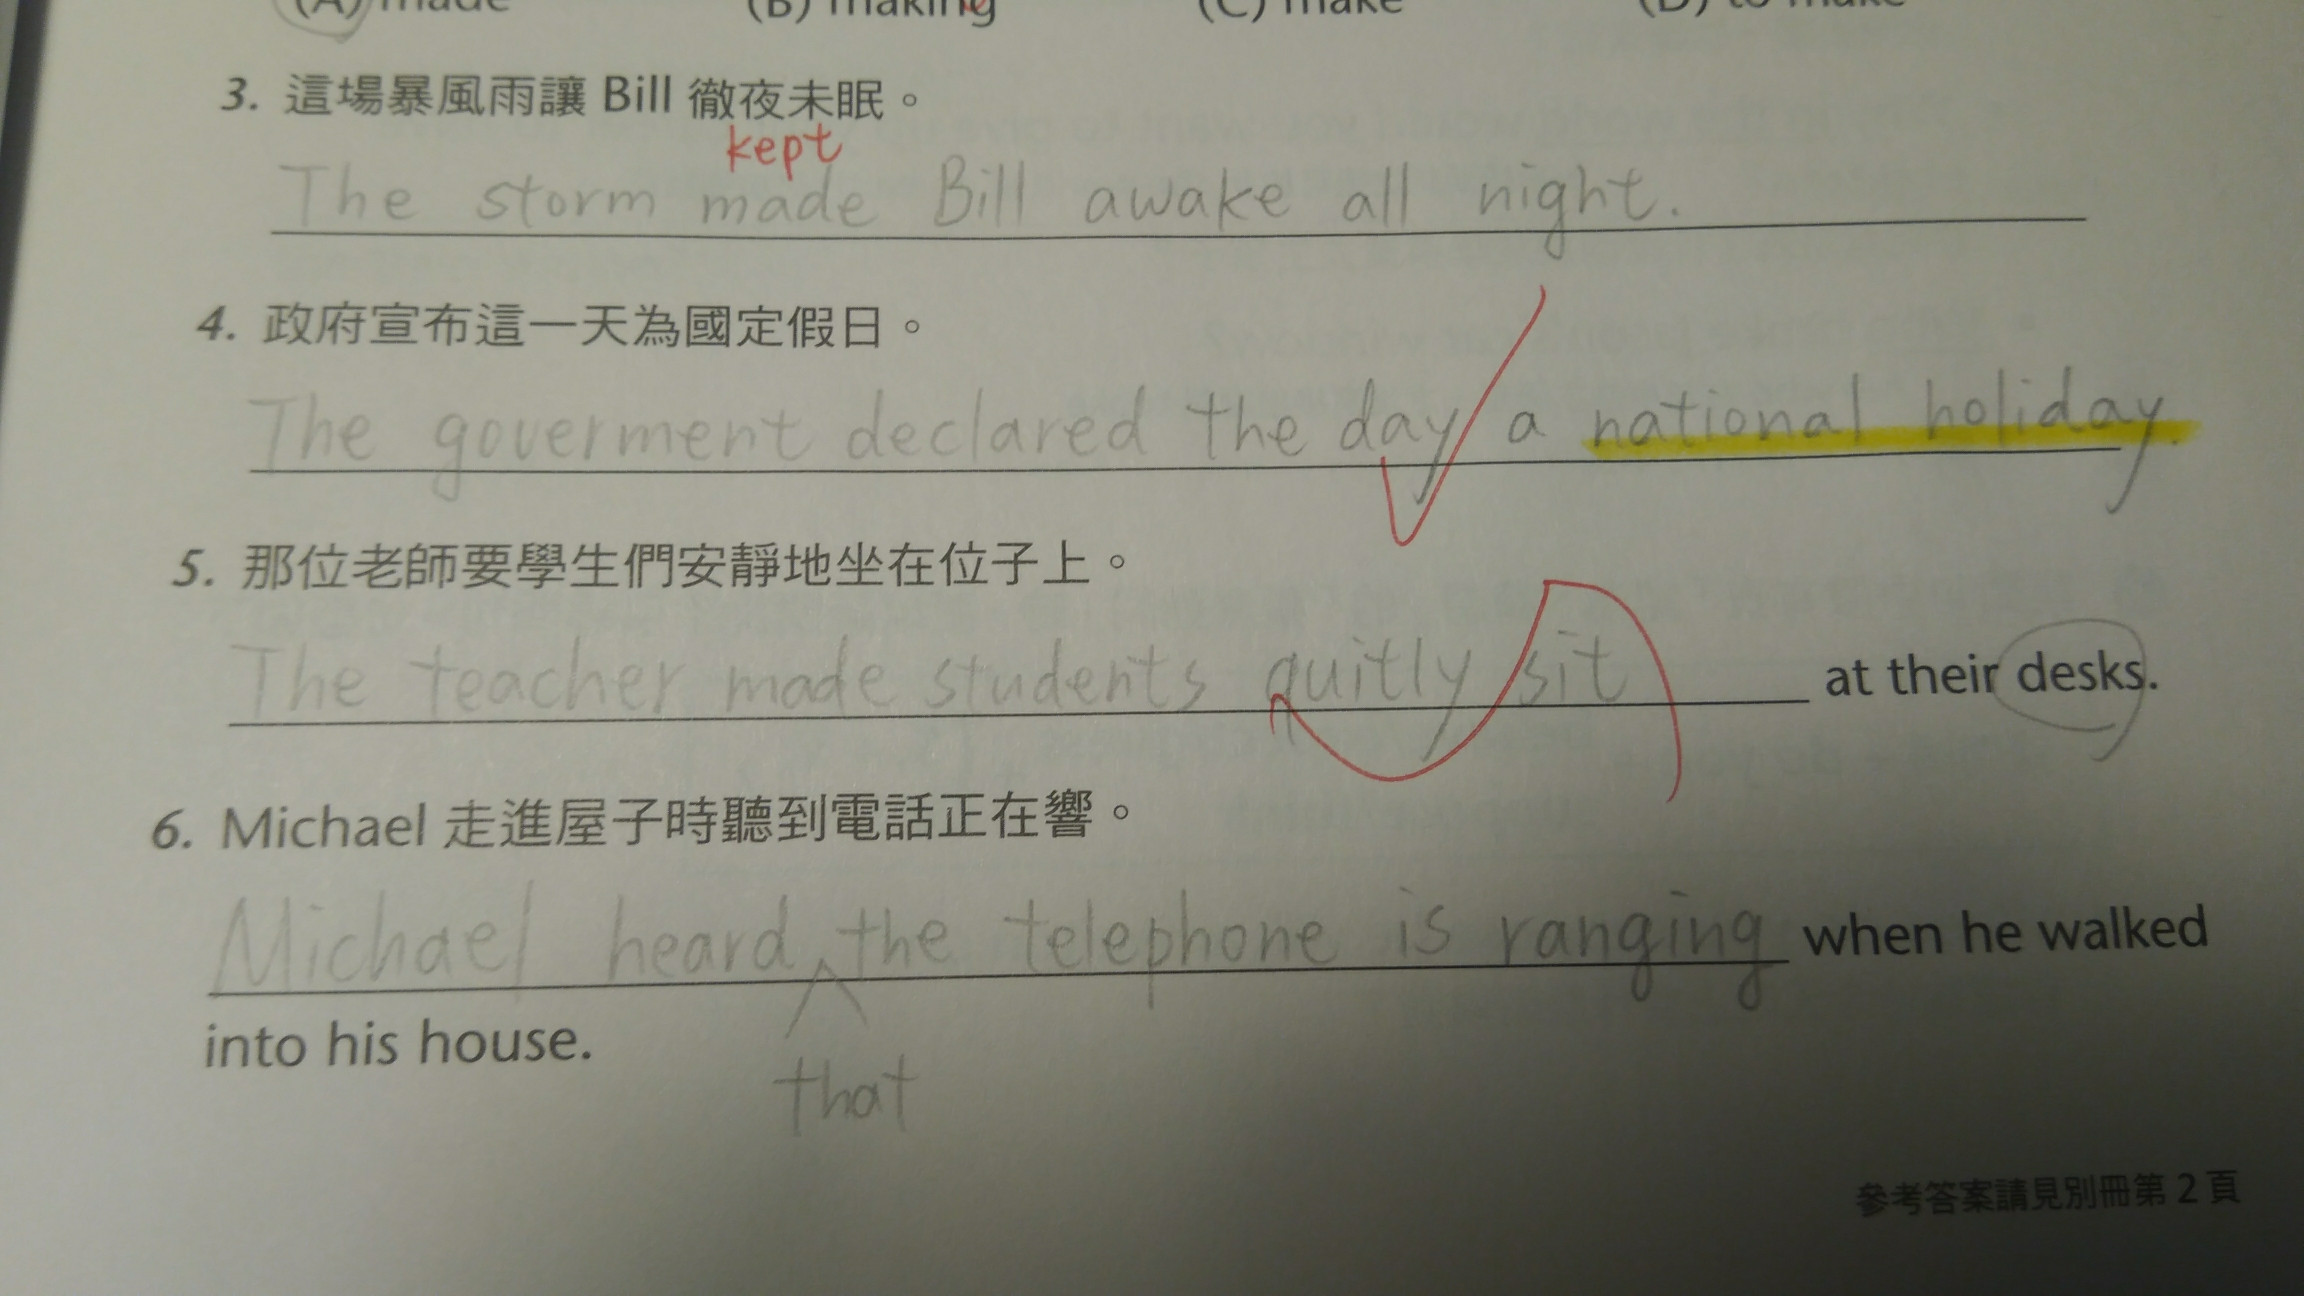 (A) made (B) making (C) make (D) to make
3. 這場暴風雨讓 Bill 徹夜未眠。
kept
The storm made Bill awake all night.
4. 政府宣布這一天為國定假日。
The goverment declared the day a national holiday.
5. 那位老師要學生們安靜地坐在位子上。
The teacher made students quitly sit at their desks.
6. Michael 走進屋子時聽到電話正在響。
Michael heard the telephone is ranging when he walked
into his house.
that
參考答案請見別冊第 2 頁